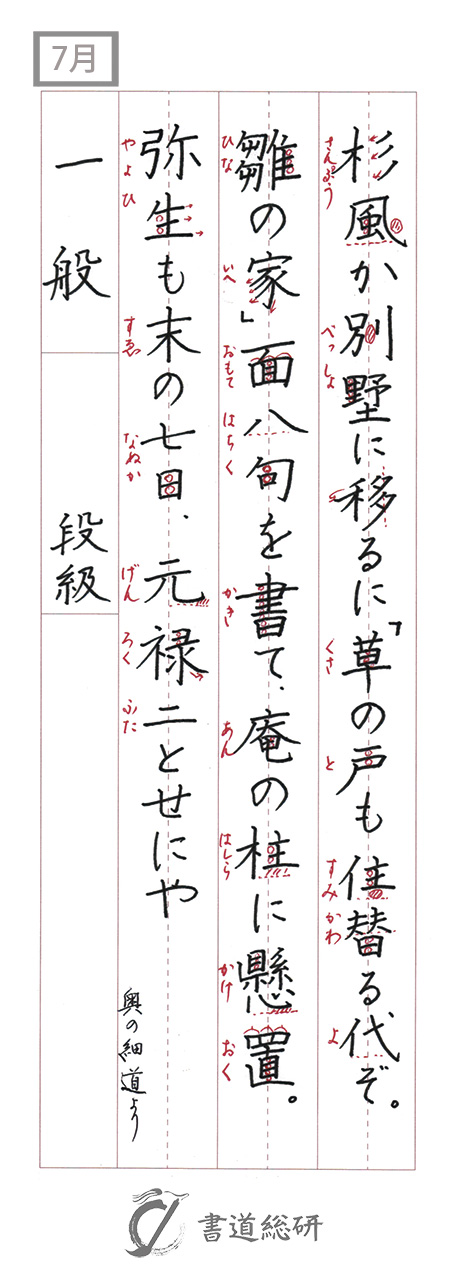 7月
杉風か別墅に移るに「草の戸も住替る代ぞ。
さんぷう べっしょ くさ と すみ かわ よ
雛の家」面八句を書て、庵の柱に懸置。
ひな いへ おもて はちく かき あん はしら かけ おく
弥生も末の七日、元禄二とせにや
やよひ すゑ なぬか げん ろく ふた
奥の細道より
一般
段級
書道総研